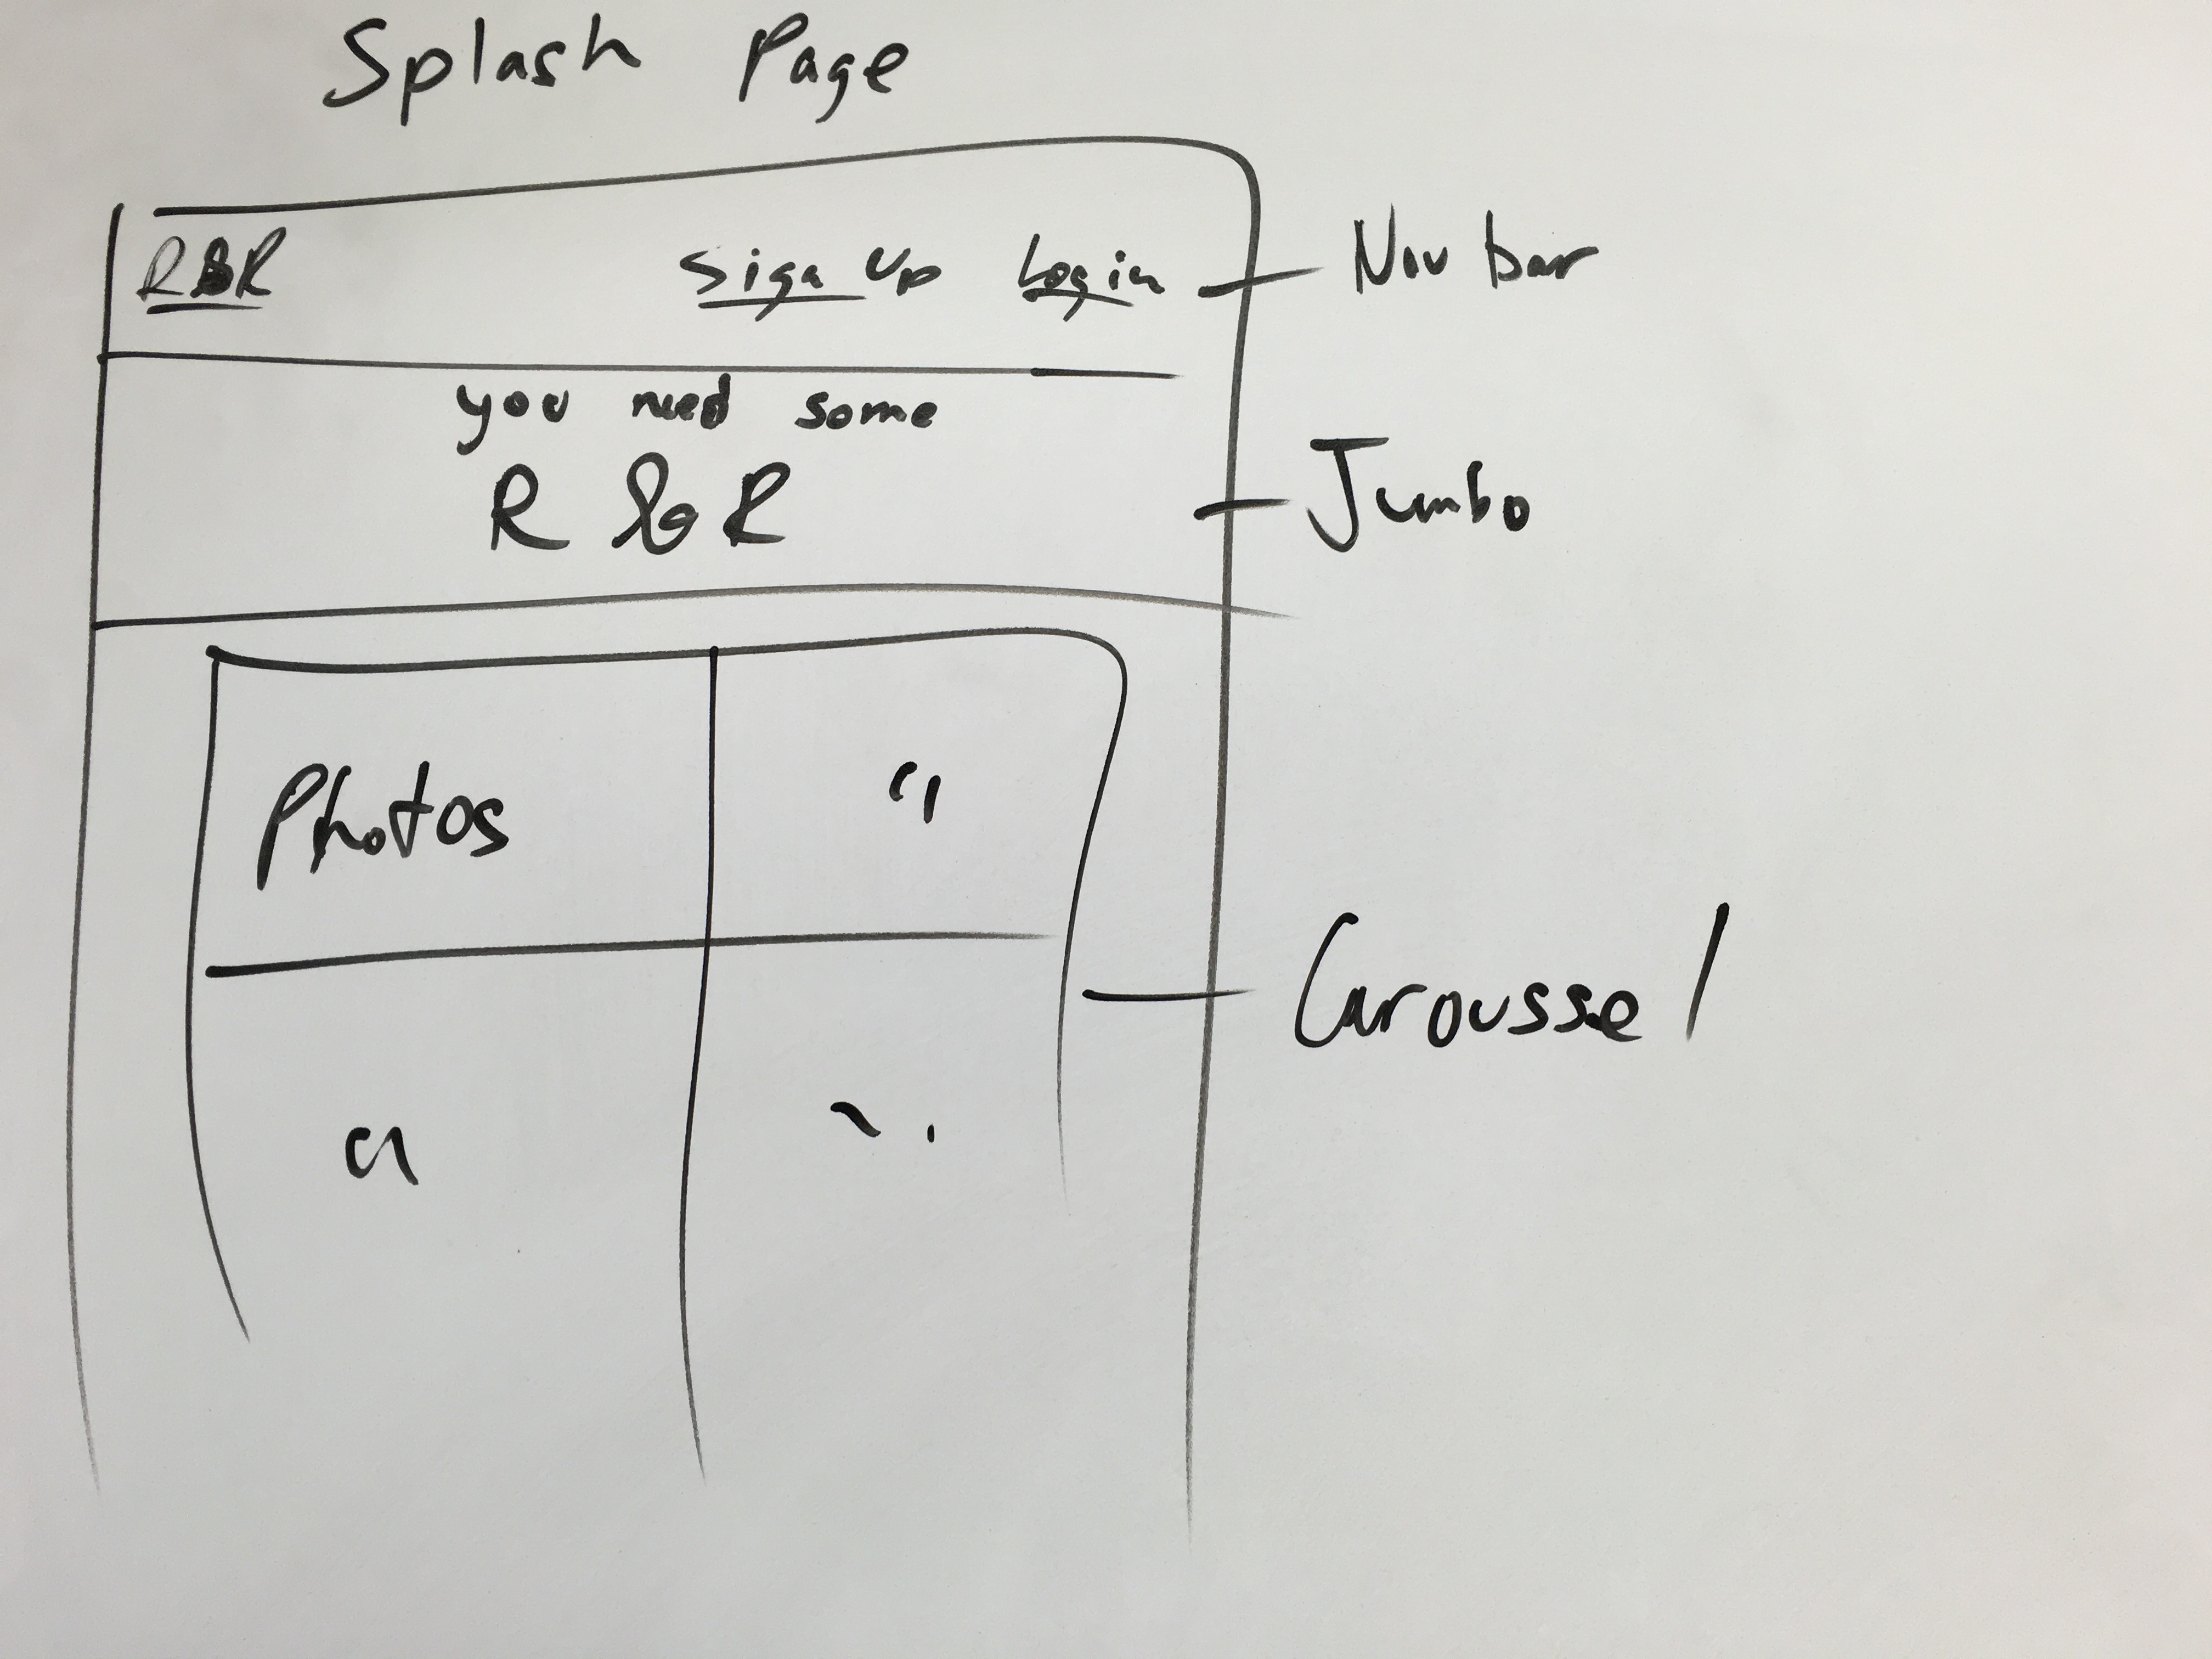 Splash Page
R&R Sign Up Login
Nav bar
you need some
R & R
Jumbo
Photos
"
Caroussel
"
"